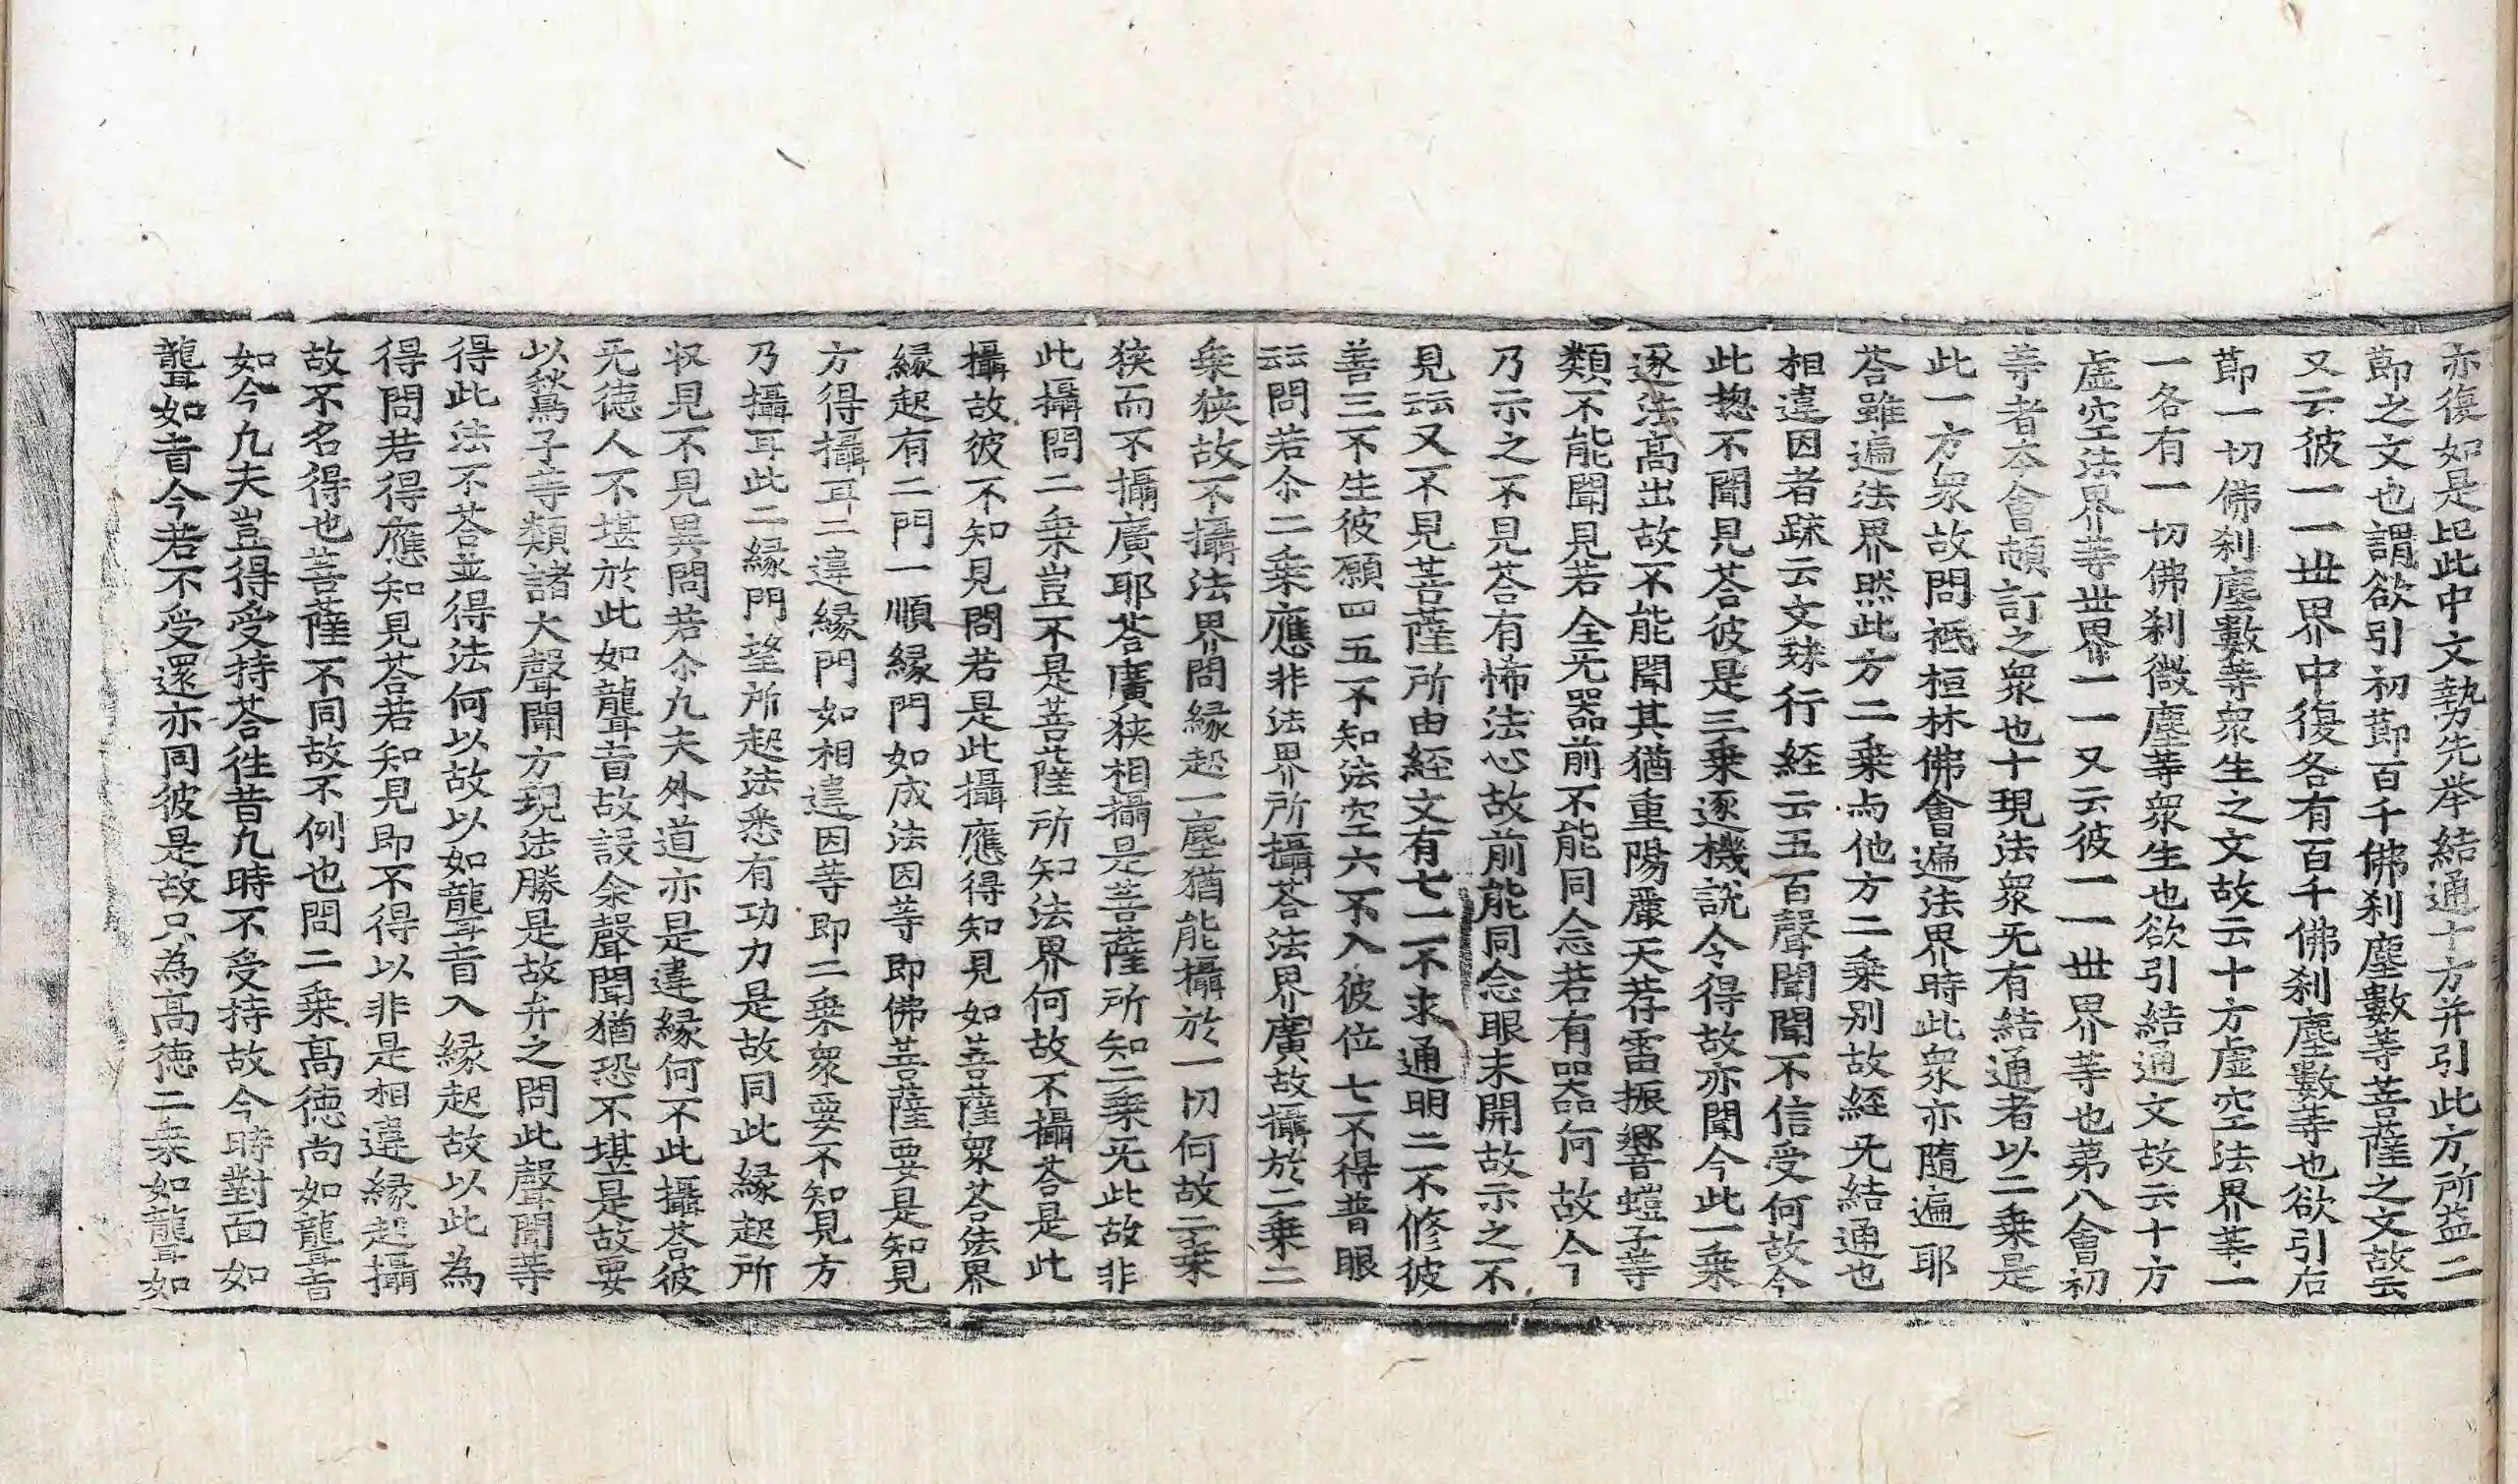 亦復如是此中文勢先举結通十方并引此方所益二
節之文也謂欲引初節百千佛刹塵數等菩薩之文故云
又云彼一一世界中復各有百千佛刹塵數等也欲引右
節一切佛刹塵數等衆生之文故云十方虛空法界等一
一各有一切佛刹微塵等衆生也欲引結通文故云十方
虛空法界等世界一一又云彼一一世界等也第八會初
等者本會頓訂之衆也十現法衆无有結通者以二乗是
此一方衆故問祇桓林佛會遍法界時此衆亦隨遍耶
荅雖遍法界然此方二乗与他方二乗别故経无結通也
相違因者䟽云文殊行経云五百聲聞聞不信受何故今
此揔不聞見荅彼是三乗逐機說令得故亦聞今此一乗
逐法髙出故不能聞其猶重陽䕾天荐雷振嚮螘子等
類不能聞見若全无器前不能同念若有器何故今
乃示之不見荅有悕法心故前能同念眼未開故示之不
見云云又不見菩薩所由経文有七一不求通明二不修彼
善三不生彼願四五不知法空六不入彼位七不得普眼
云云問若尒二乗應非法界所攝荅法界廣故攝於二乗二
乗狭故不攝法界問縁起一塵猶能攝於一切何故二乗
狭而不攝廣耶荅廣狭相攝是菩薩所知二乗无此故非
此攝問二乗豈不是菩薩所知法界何故不攝荅是此
攝故彼不知見問若是此攝應得知見如菩薩衆荅法界
縁起有二門一順縁門如成法因等即佛菩薩要是知見
方得攝耳二違縁門如相違因等即二乗衆要不知見方
乃攝耳此二縁門望所起法悉有功力是故同此縁起所
収見不見異問若尒凡夫外道亦是違縁何不此攝荅彼
无德人不堪於此如聾盲故設余聲聞猶恐不堪是故要
以鶖子等類諸大聲聞方現法勝是故弁之問此聲聞等
得此法不荅並得法何以故以如聾盲入縁起故以此為
得問若得應知見荅若知見即不得以非是相違縁起攝
故不名得也菩薩不同故不例也問二乗髙德尚如聾盲
如今凡夫豈得受持荅徃昔凡時不受持故今時對面如
聾如盲今若不受還亦同彼是故只為髙德二乗如聾如